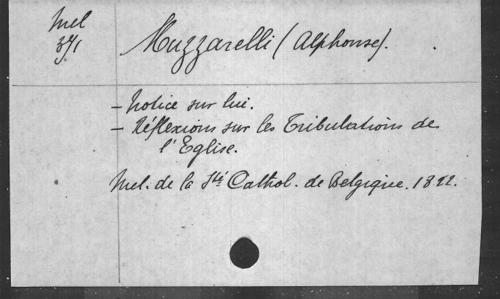 Mel
371
Muzzarelli (Alphonse).
- Notice sur lui.
- Réflexions sur les Tribulations de
l'Eglise.
Mel. de la Sté Cathol. de Belgique. 1822.